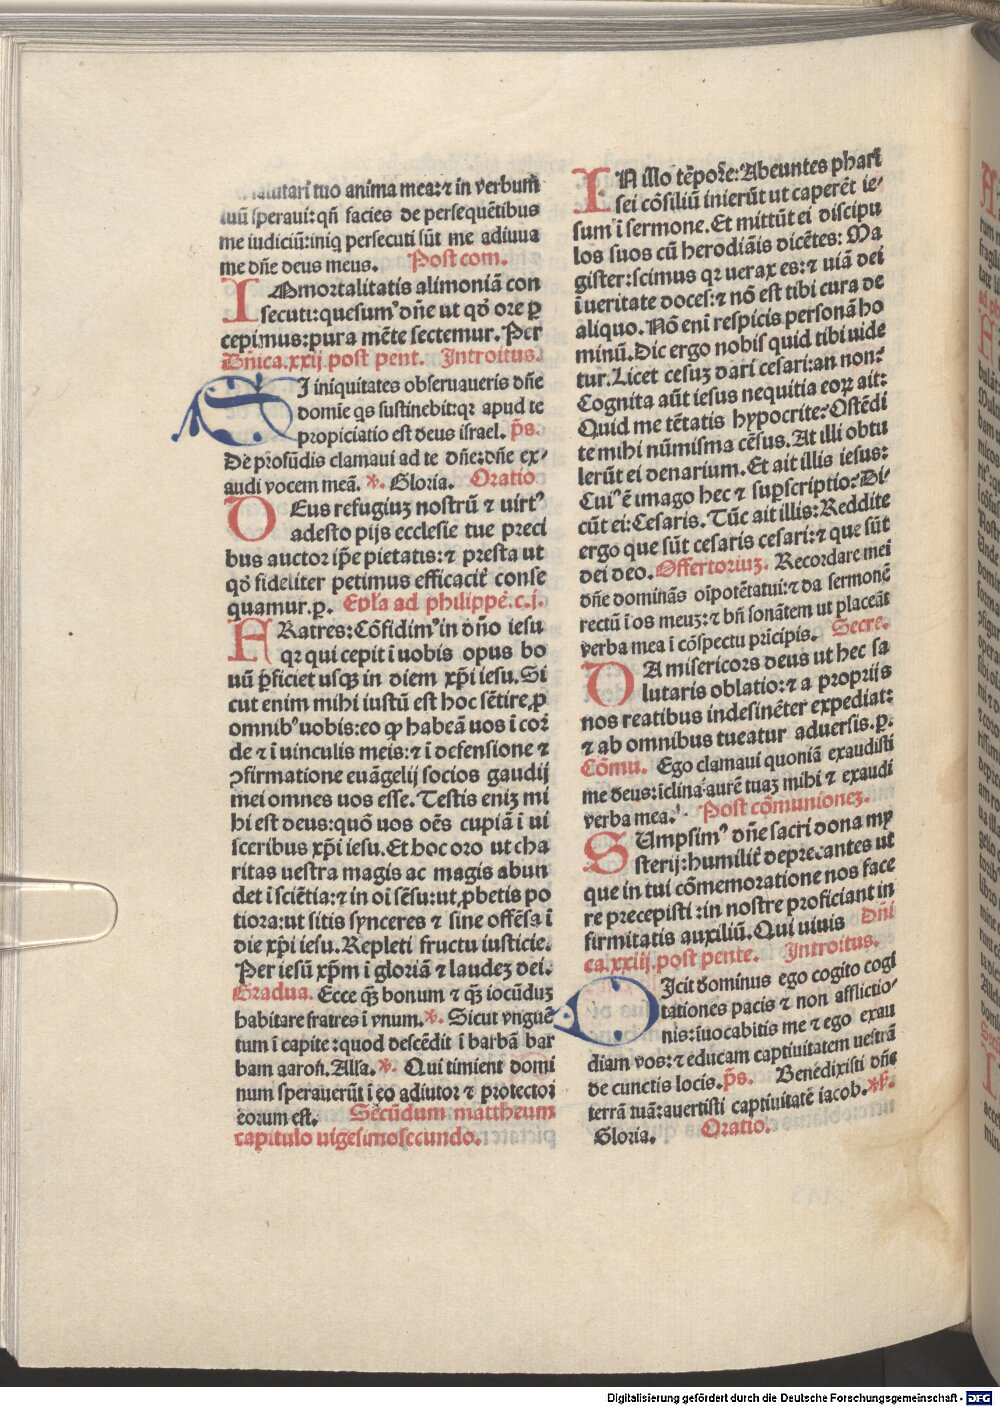 salutari tuo anima mea:⁊ in verbum̄
tuū speraui:qn̄ facies de persequētibus
me iudiciū:iniq persecuti sūt me adiuua
me dn̄e deus meus. Post com.
IMmortalitatis alimoniā con
secuti:quesumꝰ dn̄e ut qđ ore ꝑ
cepimus:pura mēte sectemur. Per
Dn̄ica.xxij.post pent. Introitus.
SI iniquitates obseruaueris dn̄e
domie qs sustinebit:qꝛ apud te
propiciatio est deus israel. p̄s.
De profūdis clamaui ad te dn̄e:dn̄e ex⸗
audi vocem meā. ℣. Gloria. Oratio
DEus refugiuꝫ nostrū ⁊ uirtꝰ
adesto pijs ecclesie tue preci
bus auctor ip̄e pietatis:⁊ presta ut
qđ fideliter petimus efficacit̄ conse
quamur.p. Epl̄a ad philippē.c.j.
FRatres:Cōfidimꝰ in dn̄o iesu
qꝛ qui cepit ī uobis opus bo
uū ꝑficiet usqꝫ in diem xp̄i iesu.Si
cut enim mihi iustū est hoc sētire,ꝓ
omnibꝰ uobis:eo ꝙ habeā uos ī cor̄
de ⁊ ī uinculis meis:⁊ ī defensione ⁊
ꝯfirmatione euāgelij socios gaudij
mei omnes uos esse.Testis eniꝫ mi
hi est deus:quō uos oēs cupiā ī ui
sceribus xp̄i iesu.Et hoc oro ut cha
ritas uestra magis ac magis abun
det ī sciētia:⁊ in oī sēsu:ut ꝓbetis po
tiora:ut sitis synceres ⁊ sine offēsa ī
die xp̄i iesu.Repleti fructu iusticie.
Per iesū xp̄m ī gloriā ⁊ laudeꝫ dei.
Gradua. Ecce qꝫ bonum ⁊ qꝫ iocūduꝫ
habitare fratres ī vnum.℣. Sicut vnguē
tum ī capite:quod descēdit ī barbā bar
bam aaron̄.Alla. ℣. Qui timient domi
num sperauerūt ī eo adiutor ⁊ protector
eorum est. Secūdum mattheum
capitulo uigesimosecundo.
IN illo tēpore:Abeuntes phari
sei cōsiliū inierūt ut caperēt ie⸗
sum ī sermone.Et mittūt ei discipu
los suos cū herodiāis dicētes: Ma
gister:scimus qꝛ uerax es:⁊ uiā dei
ī ueritate doces:⁊ nō est tibi cura de
aliquo.Nō eni respicis personā ho
minū.Dic ergo nobis quid tibi uide
tur.Licet cesuꝫ dari cesari:an non?
Cognita aūt iesus nequitia eoꝝ ait:
Quid me tētatis hypocrite?Ostēdi
te mihi nūmisma cēsus.At illi obtu
lerūt ei denarium.Et ait illis iesus:
Cuiꝰ ē imago hec ⁊ suꝑscriptio?Di⸗
cūt ei:Cesaris.Tūc ait illis:Reddite
ergo que sūt cesaris cesari:⁊ que sūt
dei deo.Offertoriuꝫ. Recordare mei
dn̄e dominās oīpotētatui:⁊ da sermonē
rectū ī os meuꝫ:⁊ bn̄ sonātem ut placeāt
verba mea ī cōspectu prīcipis. Secre.
DA misericors deus ut hec sa
lutaris oblatio:⁊ a proprijs
nos reatibus indesinēter expediat:
⁊ ab omnibus tueatur aduersis.p.
Cōmu. Ego clamaui quoniā exaudisti
me deus:iclina aurē tuaꝫ mihi ⁊ exaudi
verba mea. Post cōmunioneꝫ.
SUmpsimꝰ dn̄e sacri dona my
sterij:humilit̄ deprecantes ut
que in tui cōmemoratione nos face
re precepisti :in nostre proficiant in
firmitatis auxiliū.Qui uiuis Dn̄i
ca.xxiij.post pente. Introitus.
DIcit dominus ego cogito cogi
tationes pacis ⁊ non afflictio⸗
nis:iuocabitis me ⁊ ego exau
diam vos:⁊ educam captiuitatem uestrā
de cunctis locis.p̄s. Benedixisti dn̄e
terrā tuā:auertisti captiuitatē iacob.℣.
Gloria. Oratio.
Digitalisierung gefördert durch die Deutsche Forschungsgemeinschaft - DFG